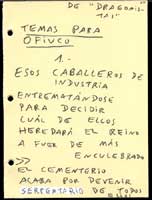 DE "DRAGONIS-
TAS"
TEMAS PARA
OFIUCO
1.-
ESOS CABALLEROS DE
INDUSTRIA
ENTREMATÁNDOSE
PARA DECIDIR
CUÁL DE ELLOS
HEREDARÁ EL REINO
A FUER DE MÁS
ENCULEBRADO
>>
EL CEMENTERIO
ACABA POR DEVENIR
SERPENTARIO DE TODOS
ELLOS